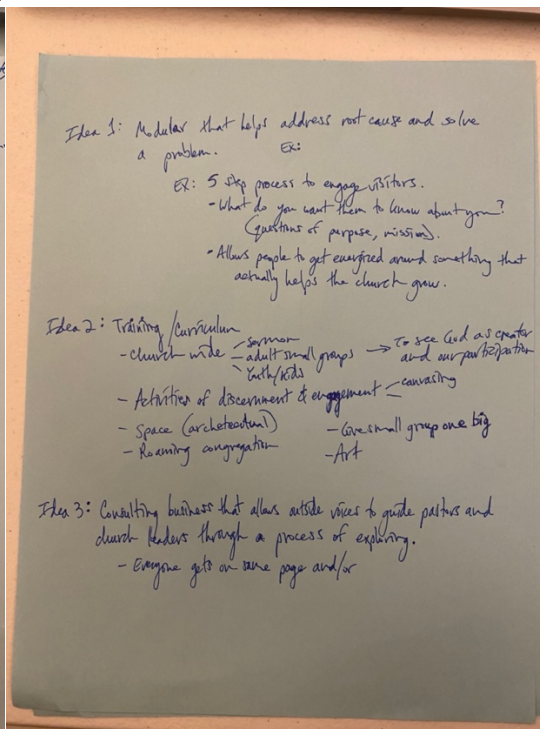 Idea 1: Modular that helps address root cause and solve
a problem. Ex:
EX: 5 step process to engage visitors.
- What do you want them to know about you?
(questions of purpose, mission).
- Allows people to get energized around something that
actually helps the church grow.
Idea 2: Training/Curriculum
- Church wide - sermon
- adult small groups → To see God as creator
- Youth/Kids and our participation
- Activities of discernment & engagement - canvasing
- Space (archetectual) - Give small group one big
- Roaming congregation - Art
Idea 3: Consulting business that allows outside voices to guide pastors and
church leaders through a process of exploring.
- Everyone gets on same page and/or